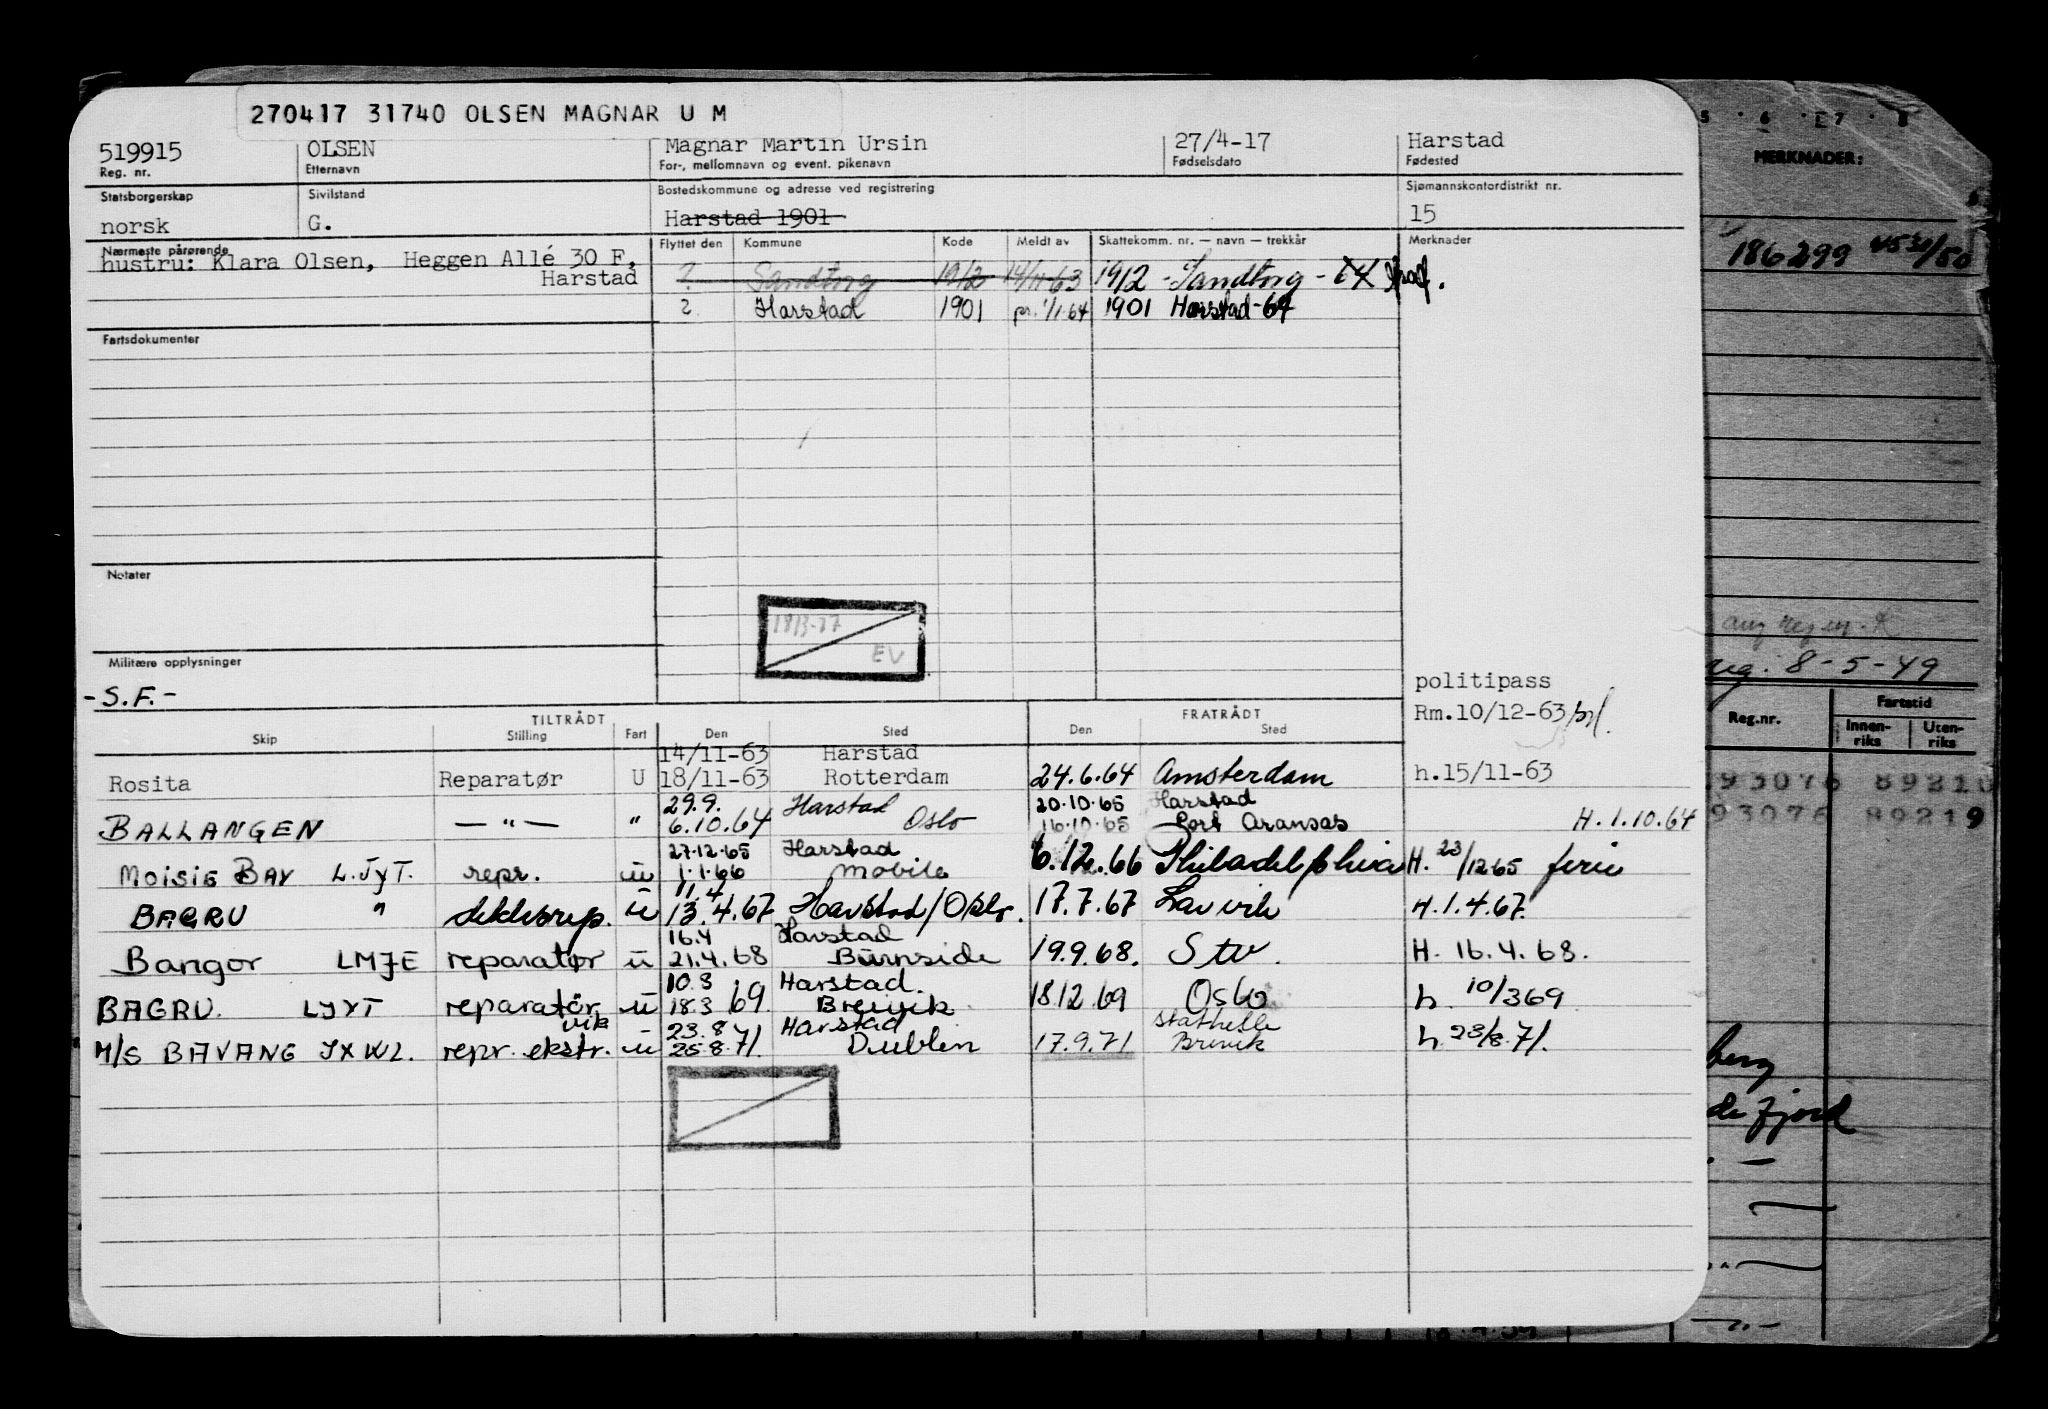 270417 31740 OLSEN MAGNAR U M
519915 OLSEN Magnar Martin Ursin 27/4-17 Harstad
Reg. nr. Etternavn For-, mellomnavn og event. pikenavn Fødselsdato Fødested
Statsborgerskap Sivilstand Bostedskommune og adresse ved registrering Sjømannskontordistrikt nr.
norsk G. Harstad 1901 15
Nærmeste pårørende Flyttet den Kommune Kode Meldt av Skattekomm. nr. — navn — trekkår Merknader
hustru: Klara Olsen, Heggen Allé 30 F,
Harstad
? 1912 14/11-63 1912
? Harstad 1901 pr. 1/1-64 1901 Harstad-64
Fartsdokumenter
Notater
EV
Militære opplysninger
-S.F.-
politipass
Rm.10/12-63
TILTRÅDT FRATRÅDT
Skip Stilling Fart Den Sted Den Sted
14/11-63 Harstad
Rosita Reparatør U 18/11-63 Rotterdam 24.6.64 Amsterdam h.15/11-63
29.9. Harstad 20.10.65 Harstad
BALLANGEN — " — " 6.10.64 Oslo 16.10.65 Port Aransas H.1.10.64
27.12.65 Harstad
MOISIE BAY L.J.Y.T. repr. u 1.1.66 Mobile 6.12.66 Philadelphia H. 23/12 65 ferie
11.4
BAGRU " u 13.4.67 Harstad/Oslo. 17.7.67 Larvik H.1.4.67.
16.4 Harstad
Bangor LMJE reparatør u 21.4.68 Burnside 19.9.68. Stv. H. 16.4.68.
10.3 Harstad.
BAGRU. LJYT reparatør u 18.3 69 Brevik 18.12.69 Oslo h. 10/3 69
vik 23.8 Harstad Stathelle
M/S BAVANG JXWL. repr. ekstr. u 25.8.71. Dublin 17.9.71 Brevik h. 23/8.71.
5 · 6 · 7 · 8
MERKNADER:
186299
8-5-49
Reg.nr. Fartstid
Innen-riks Uten-riks
93076 89210
93076 89219
berg
de fjord